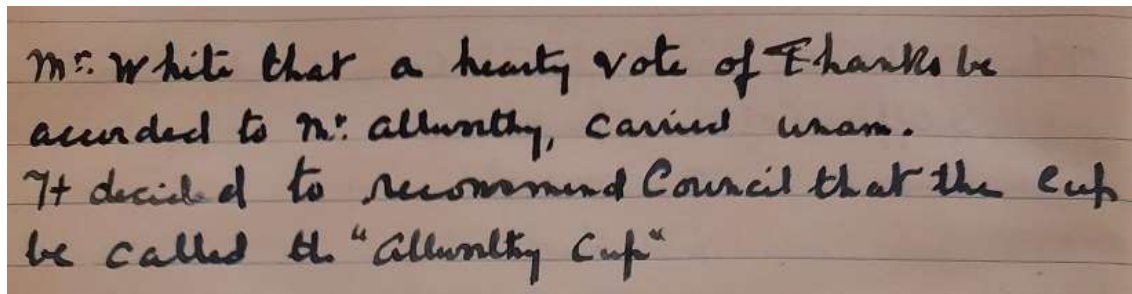 Mr. White that a hearty vote of Thanks be
accorded to Mr. Allworthy, carried unam.
It decided to recommend Council that the Cup
be called the "Allworthy Cup"